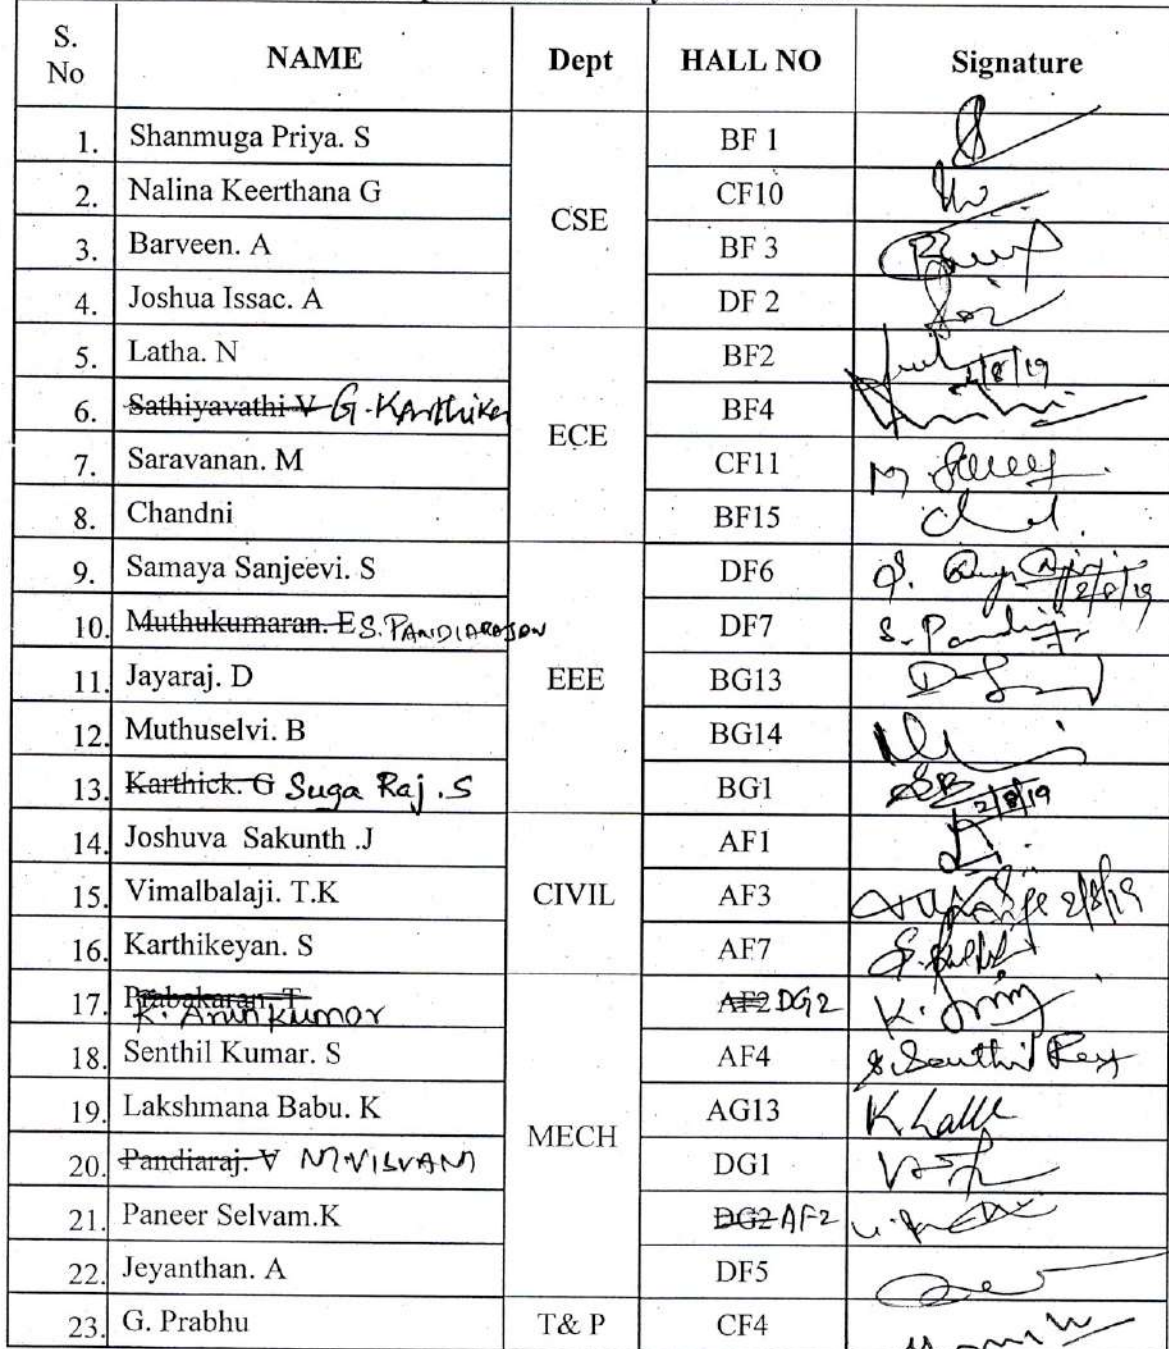 S. No NAME Dept HALL NO Signature
1. Shanmuga Priya. S CSE BF 1
2. Nalina Keerthana G CF10
3. Barveen. A BF 3
4. Joshua Issac. A DF 2
5. Latha. N ECE BF2 2/8/19
6. Sathiyavathi V G. Karthikey BF4
7. Saravanan. M CF11 M
8. Chandni BF15
9. Samaya Sanjeevi. S EEE DF6 S. 2/8/19
10. Muthukumaran. E S. PANDIARAJAN DF7 S. Pandi
11. Jayaraj. D BG13
12. Muthuselvi. B BG14
13. Karthick. G Suga Raj .S BG1 2/8/19
14. Joshuva Sakunth .J CIVIL AF1
15. Vimalbalaji. T.K AF3 2/8/19
16. Karthikeyan. S AF7
17. Prabakaran. T K. Arun Kumar MECH AF2 DG2 K.
18. Senthil Kumar. S AF4 S. Senthil
19. Lakshmana Babu. K AG13
20. Pandiaraj. V M VISVAM DG1
21. Paneer Selvam.K DG2 AF2
22. Jeyanthan. A DF5
23. G. Prabhu T& P CF4